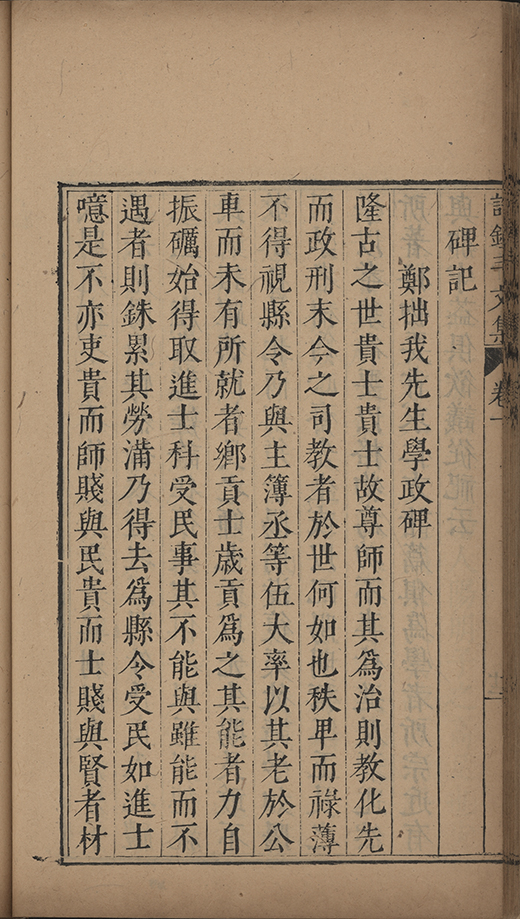 碑記
鄭拙我先生學政碑
隆古之世貴士貴士故尊師而其爲治則教化先
而政刑末今之司教者於世何如也秩卑而祿薄
不得視縣令乃與主簿丞等伍大率以其老於公
車而未有所就者鄉貢士歲貢爲之其能者力自
振礪始得取進士科受民事其不能與雖能而不
遇者則銖累其勞滿乃得去爲縣令受民如進士
噫是不亦吏貴而師賤與民貴而士賤與賢者材